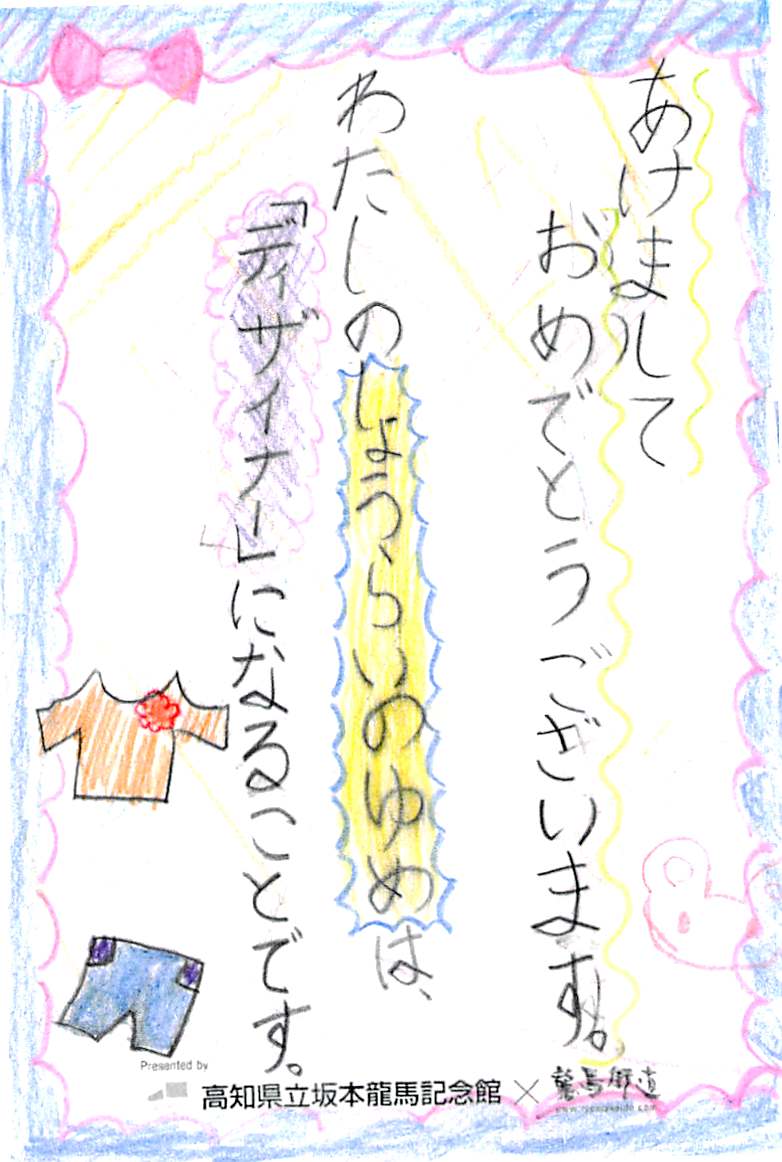 あけまして
おめでとうございます。
わたしのしょうらいのゆめは、
「ディザイナー」になることです。
Presented by
高知県立坂本龍馬記念館×龍馬街道